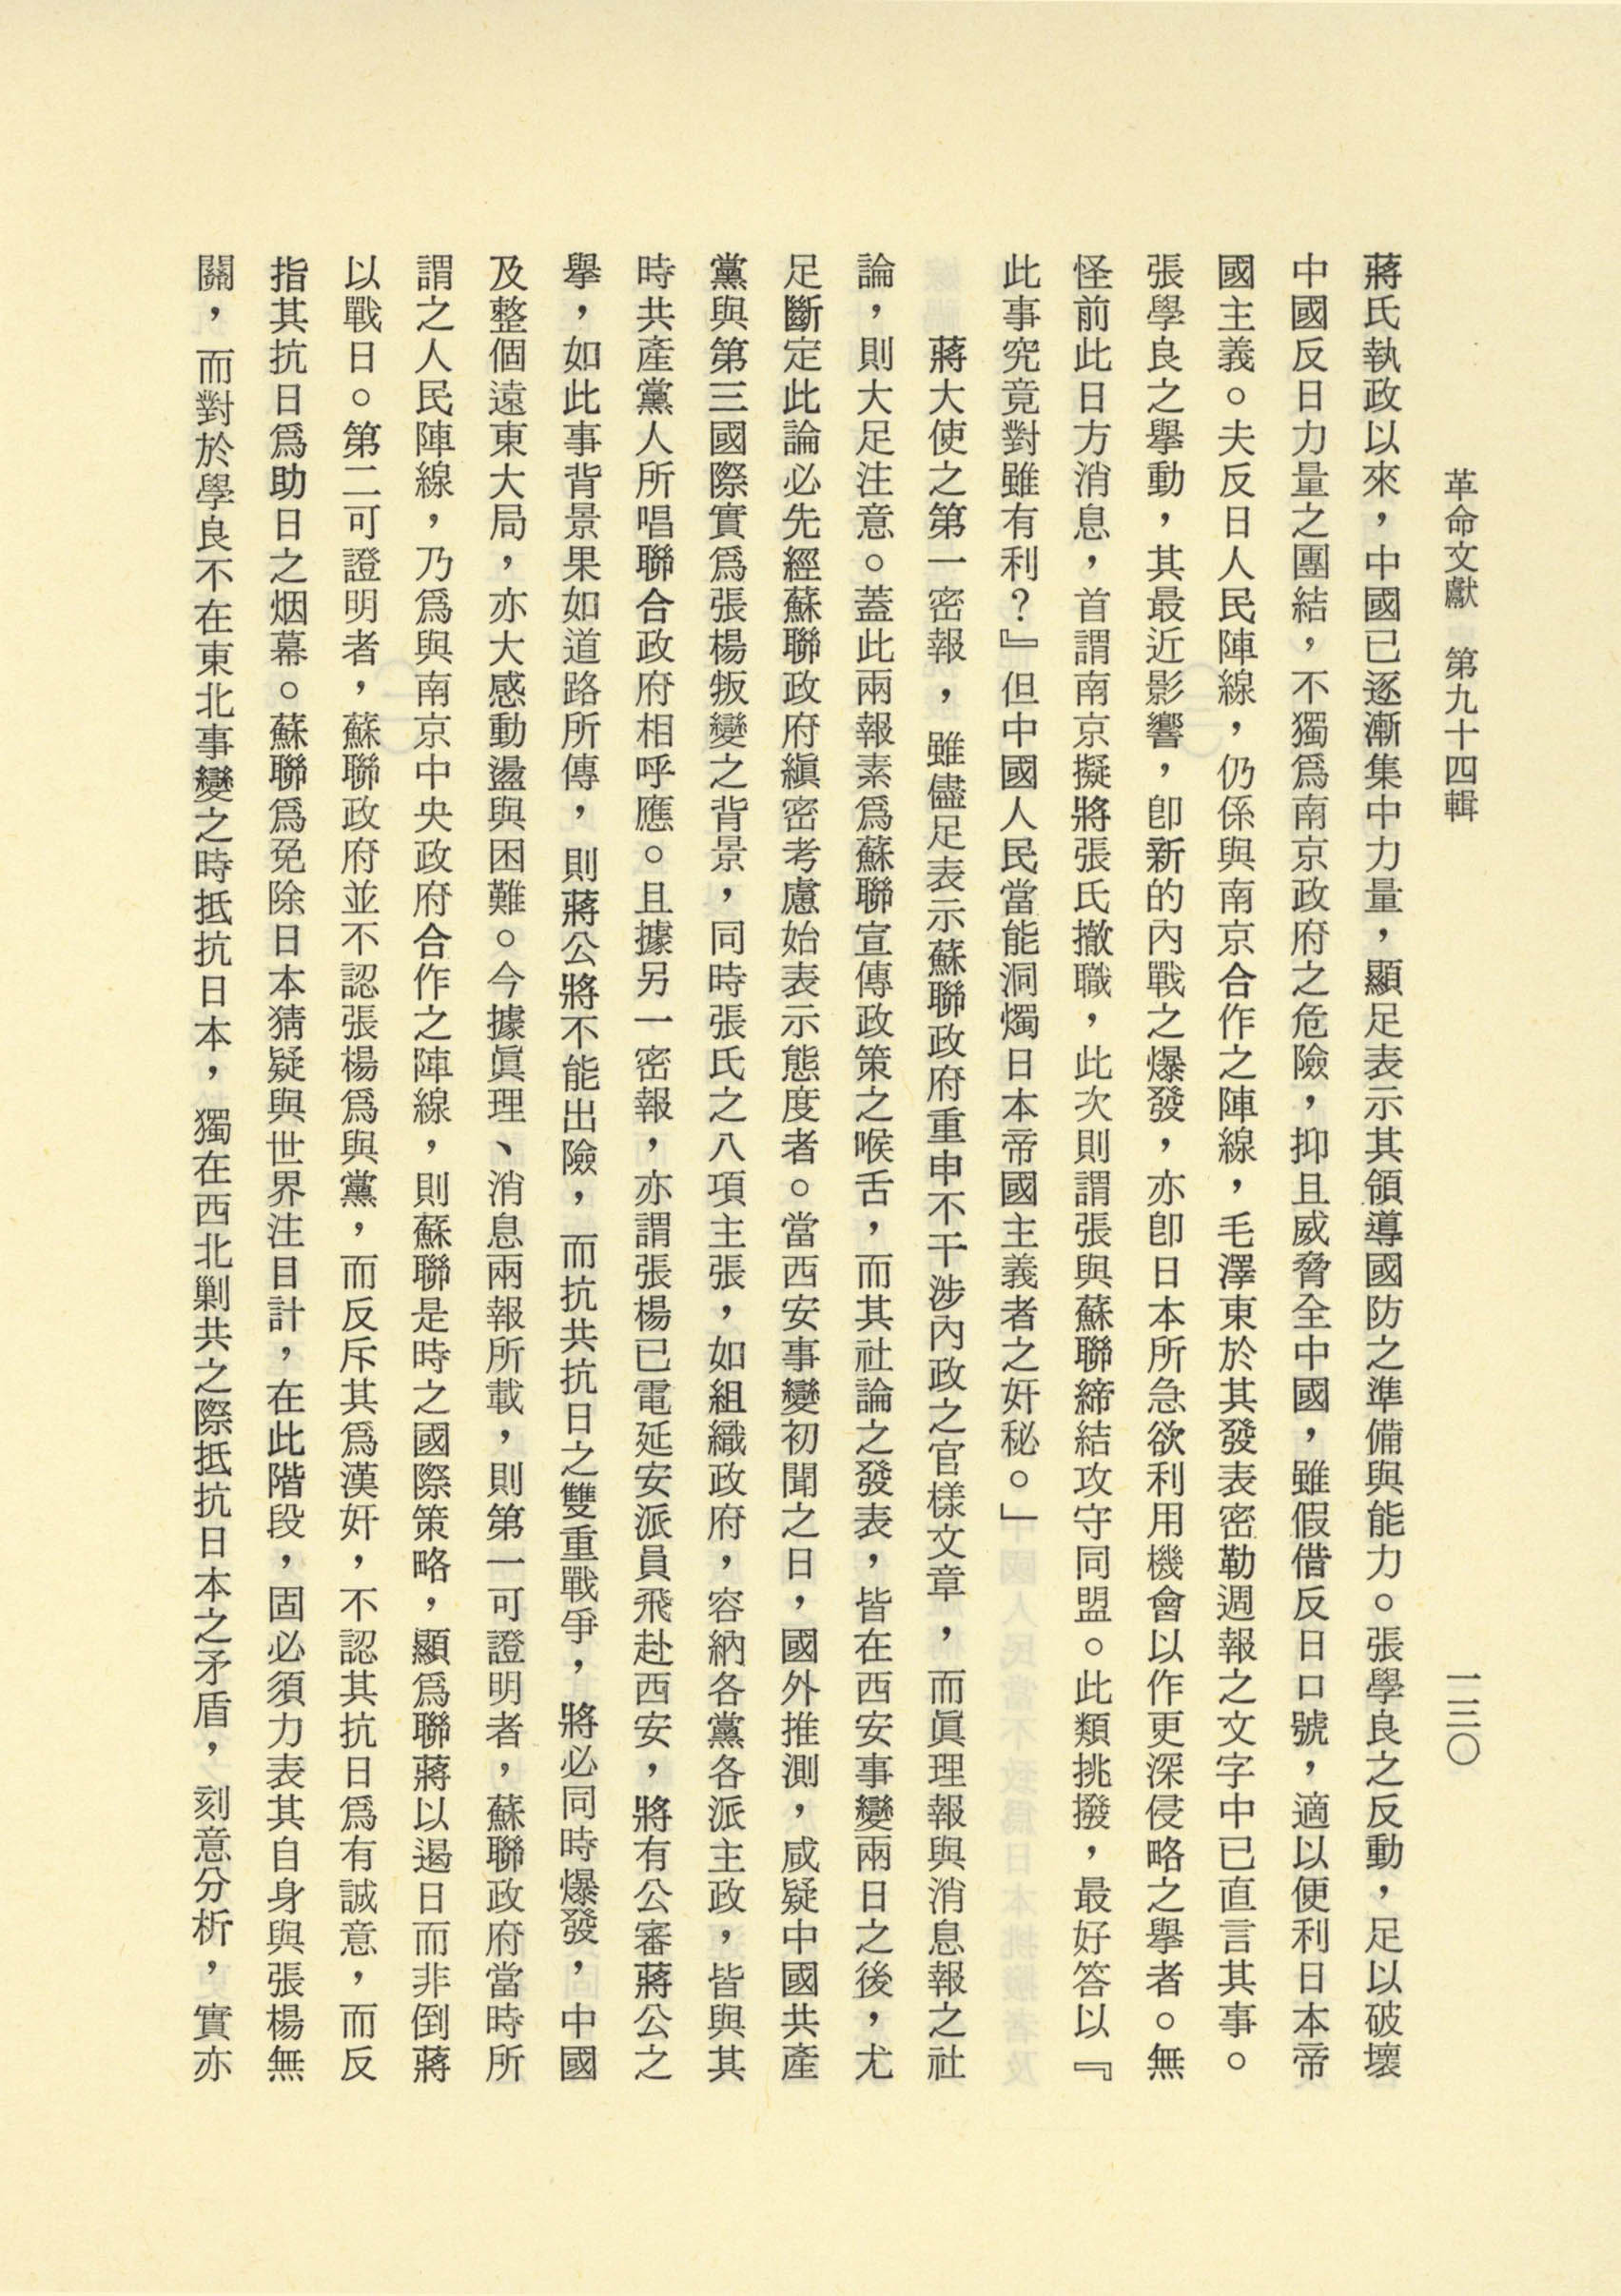 革命文獻　第九十四輯　一三〇
蔣氏執政以來，中國已逐漸集中力量，顯足表示其領導國防之準備與能力。張學良之反動，足以破壞
中國反日力量之團結，不獨爲南京政府之危險，抑且威脅全中國，雖假借反日口號，適以便利日本帝
國主義。夫反日人民陣線，仍係與南京合作之陣線，毛澤東於其發表密勒週報之文字中已直言其事。
張學良之舉動，其最近影響，卽新的內戰之爆發，亦卽日本所急欲利用機會以作更深侵略之舉者。無
怪前此日方消息，首謂南京擬將張氏撤職，此次則謂張與蘇聯締結攻守同盟。此類挑撥，最好答以『
此事究竟對雖有利？』但中國人民當能洞燭日本帝國主義者之奸秘。」
蔣大使之第一密報，雖儘足表示蘇聯政府重申不干涉內政之官樣文章，而眞理報與消息報之社
論，則大足注意。蓋此兩報素爲蘇聯宣傳政策之喉舌，而其社論之發表，皆在西安事變兩日之後，尤
足斷定此論必先經蘇聯政府縝密考慮始表示態度者。當西安事變初聞之日，國外推測，咸疑中國共產
黨與第三國際實爲張楊叛變之背景，同時張氏之八項主張，如組織政府，容納各黨各派主政，皆與其
時共產黨人所唱聯合政府相呼應。且據另一密報，亦謂張楊已電延安派員飛赴西安，將有公審蔣公之
舉，如此事背景果如道路所傳，則蔣公將不能出險，而抗共抗日之雙重戰爭，將必同時爆發，中國
及整個遠東大局，亦大感動盪與困難。今據眞理、消息兩報所載，則第一可證明者，蘇聯政府當時所
謂之人民陣線，乃爲與南京中央政府合作之陣線，則蘇聯是時之國際策略，顯爲聯蔣以遏日而非倒蔣
以戰日。第二可證明者，蘇聯政府並不認張楊爲與黨，而反斥其爲漢奸，不認其抗日爲有誠意，而反
指其抗日爲助日之烟幕。蘇聯爲免除日本猜疑與世界注目計，在此階段，固必須力表其自身與張楊無
關，而對於學良不在東北事變之時抵抗日本，獨在西北剿共之際抵抗日本之矛盾，刻意分析，實亦